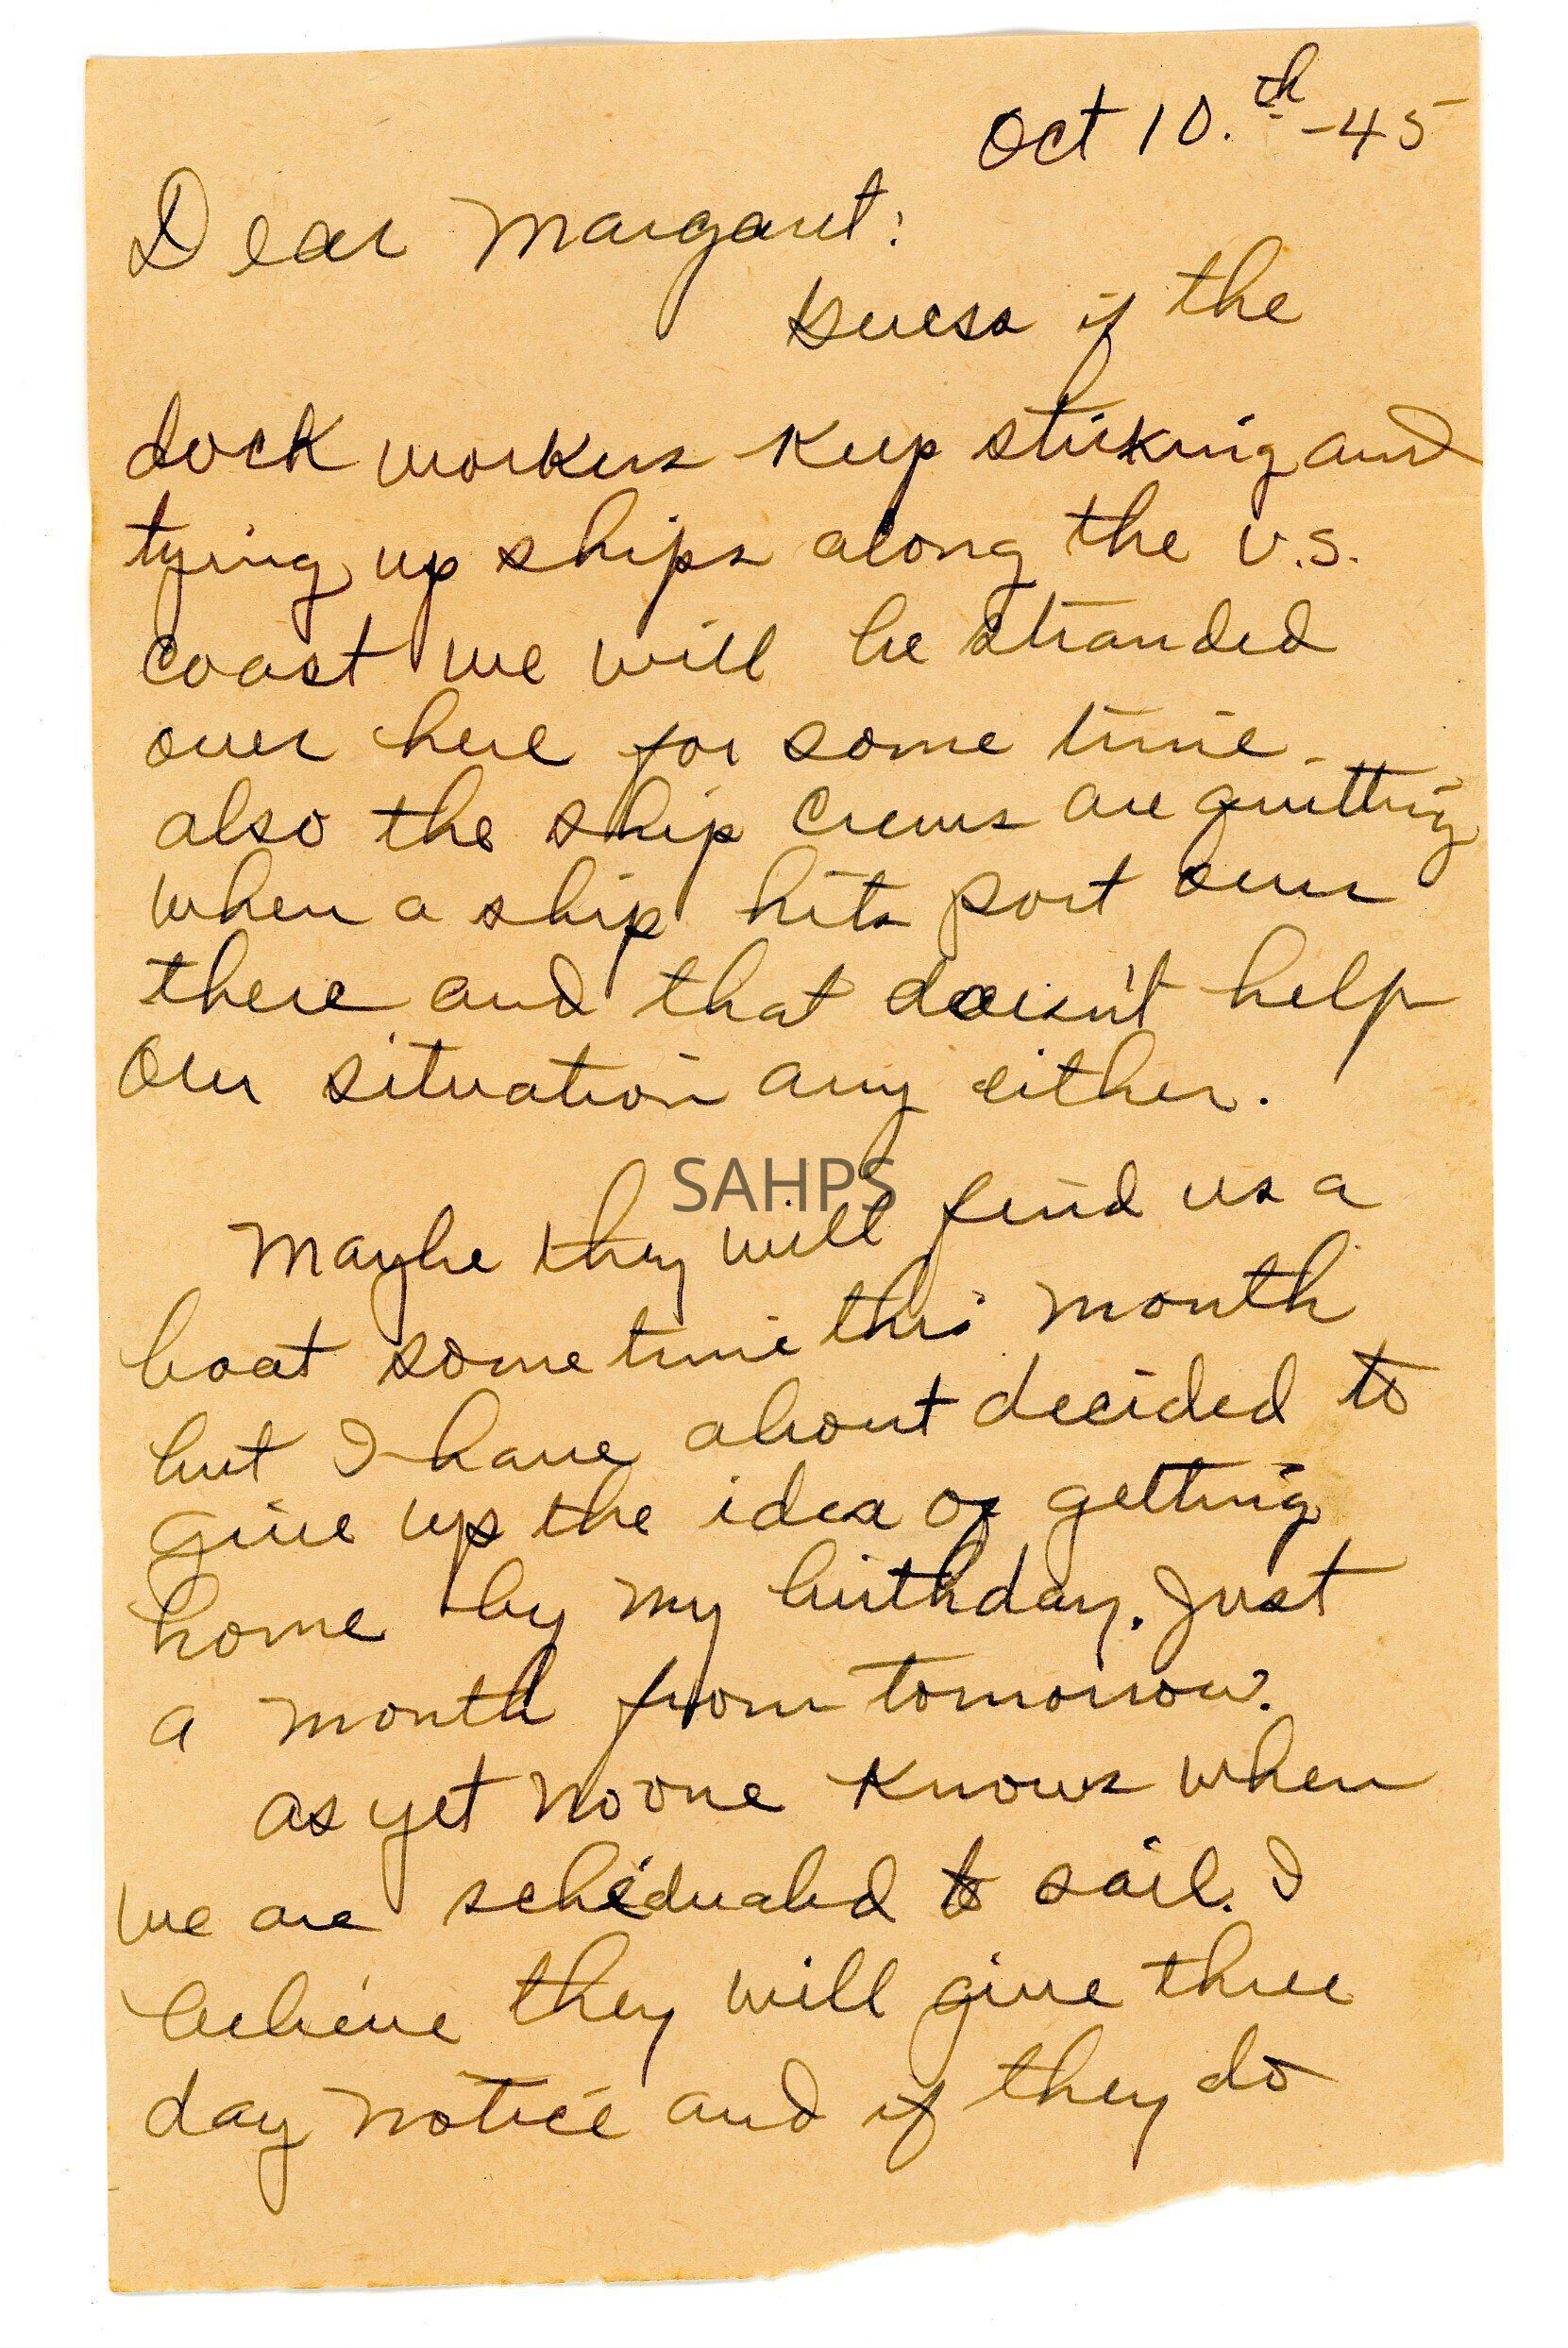 Oct 10.th -45
Dear Margaret:
Guess if the
dock workers keep striking and
tying up ships along the U.S.
coast we will be stranded
over here for some time.
also the ship crews are quitting
when a ship hits port over
there and that doesn't help
our situation any either.
SAHPS
Maybe they will find us a
boat sometime this month
but I have about decided to
give up the idea of getting
home by my birthday. Just
a month from tomorrow.
as yet no one knows when
we are schedualed to sail. I
believe they will give three
day notice and if they do